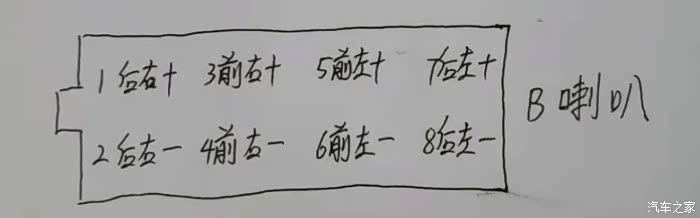 1后右+ 3前右+ 5前左+ 7后左+
2后右- 4前右- 6前左- 8后左-
B喇叭
汽车之家